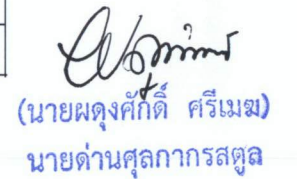 (นายผดุงศักดิ์ ศรีเมฆ)
นายด่านศุลกากรสตูล